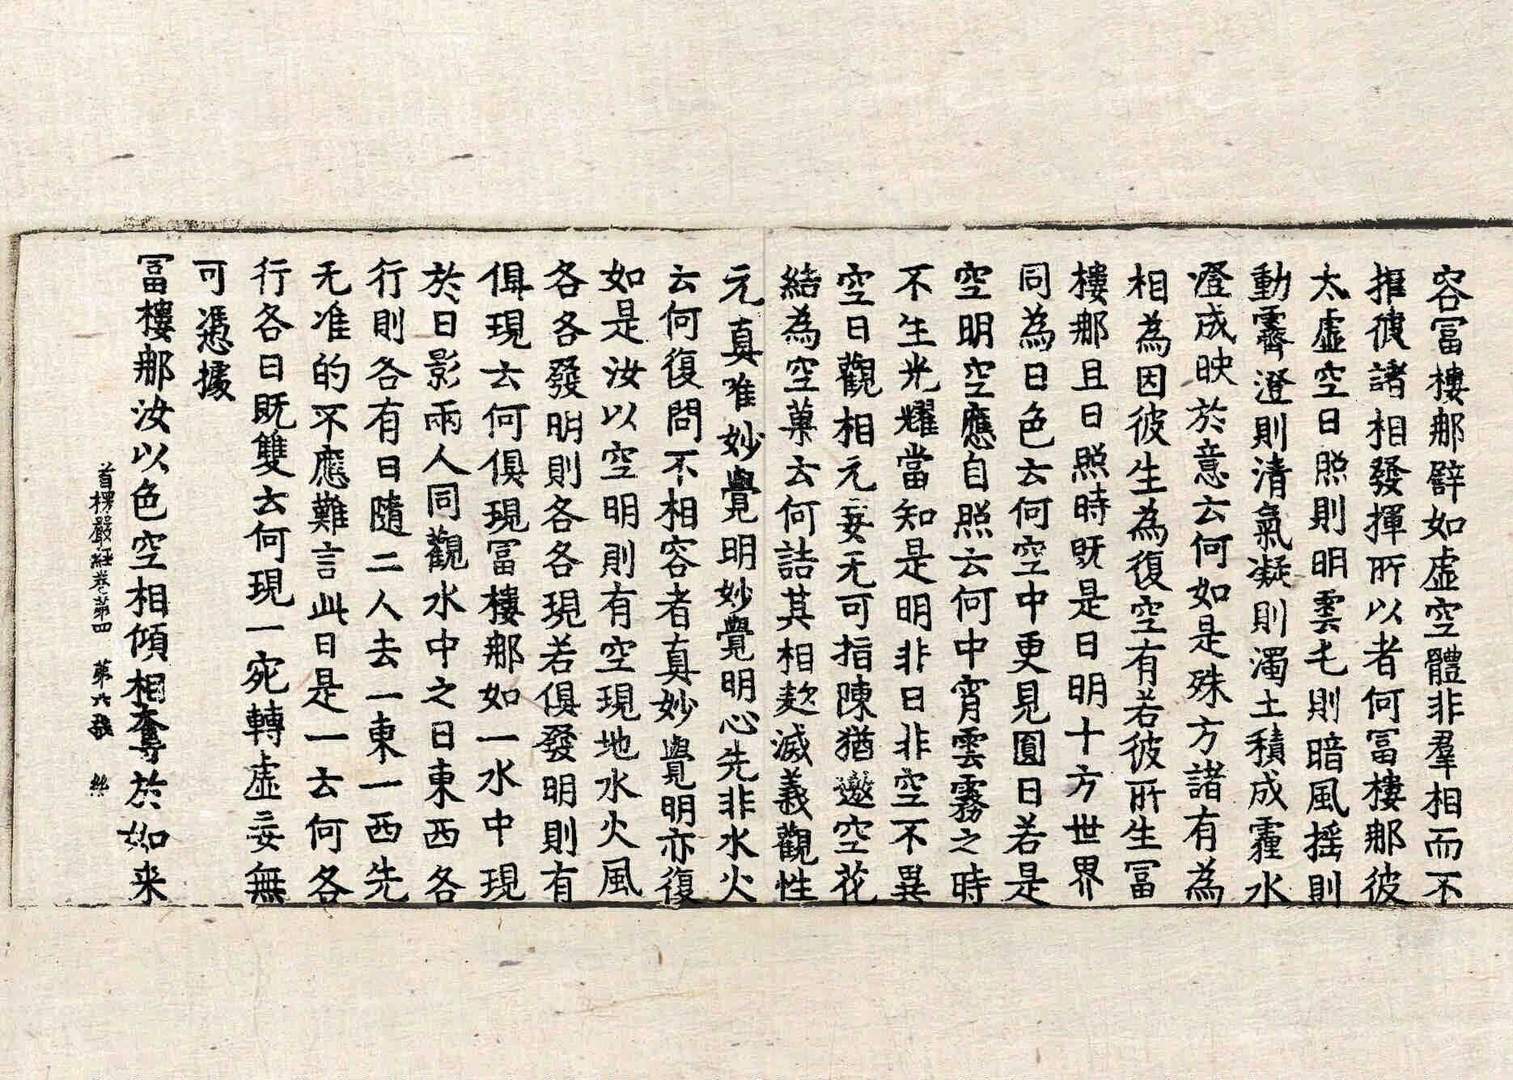 容冨樓那譬如虛空體非羣相而不
拒彼諸相發揮所以者何冨樓那彼
太虛空日照則明雲屯則暗風揺則
動霽澄則清氣凝則濁土積成霾水
澄成映於意云何如是殊方諸有為
相為因彼生為復空有若彼所生冨
樓那且日照時既是日明十方世界
同為日色云何空中更見圓日若是
空明空應自照云何中宵雲霧之時
不生光耀當知是明非日非空不異
空日觀相元妄无可指陳猶邀空花
結為空菓云何詰其相㪍滅義觀性
元真唯妙覺明妙覺明心先非水火
云何復問不相容者真妙覺明亦復
如是汝以空明則有空現地水火風
各各發明則各各現若俱發明則有
俱現云何俱現冨樓那如一水中現
於日影兩人同觀水中之日東西各
行則各有日隨二人去一東一西先
无准的不應難言此日是一云何各
行各日既雙云何現一宛轉虛妄無
可憑據
冨樓那汝以色空相傾相奪於如来
首楞嚴經卷苐四　苐六張　絲